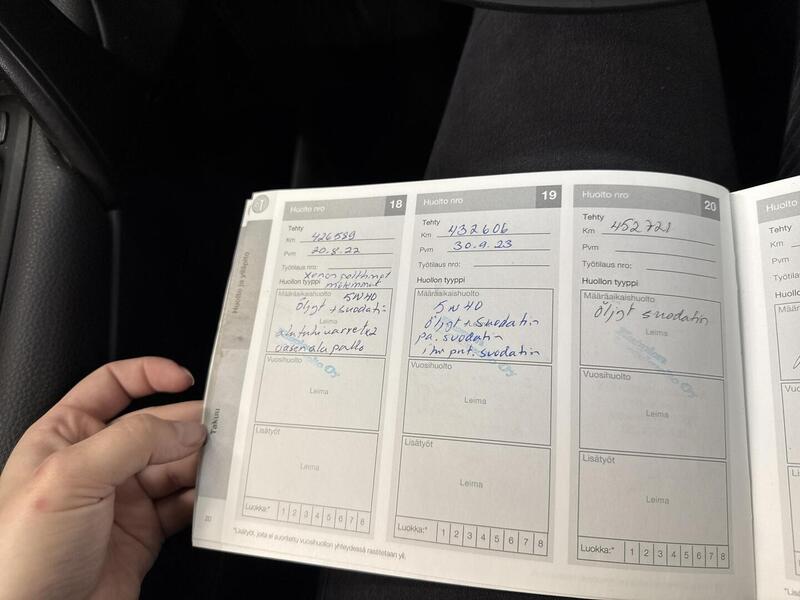 Huolto ja ylläpito
Takuu
Huolto nro 18
Tehty
Km 426589
Pvm 20.8.22
Työtilaus nro:
xenon polttimot
Huollon tyyppi molemmat
Määräaikaishuolto 5W40
öljyt + suodatin
Leima
alatukivarret x2
vasen ala pallo
Oy
Vuosihuolto
Leima
Lisätyöt
Leima
Luokka:* 1 2 3 4 5 6 7 8
20
*Lisätyöt, joita ei suoritettu vuosihuollon yhteydessä rastitetaan yli.
Huolto nro 19
Tehty
Km 432606
Pvm 30.9.23
Työtilaus nro:
Huollon tyyppi
Määräaikaishuolto
5W40
öljyt + suodatin
pa. suodatin
suodatin
Oy
Vuosihuolto
Leima
Lisätyöt
Leima
Luokka:* 1 2 3 4 5 6 7 8
Huolto nro 20
Tehty
Km 452721
Pvm
Työtilaus nro:
Huollon tyyppi
Määräaikaishuolto
öljyt suodatin
Leima
Oy
Vuosihuolto
Leima
Lisätyöt
Leima
Luokka:* 1 2 3 4 5 6 7 8
Huolto
Tehty
Km
Pvm